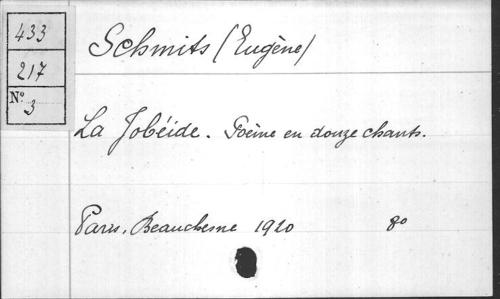 433
217
N° 3
Schmits (Eugène)
La Jobéide. Poème en douze chants.
Paris, Beauchesne 1920 8°